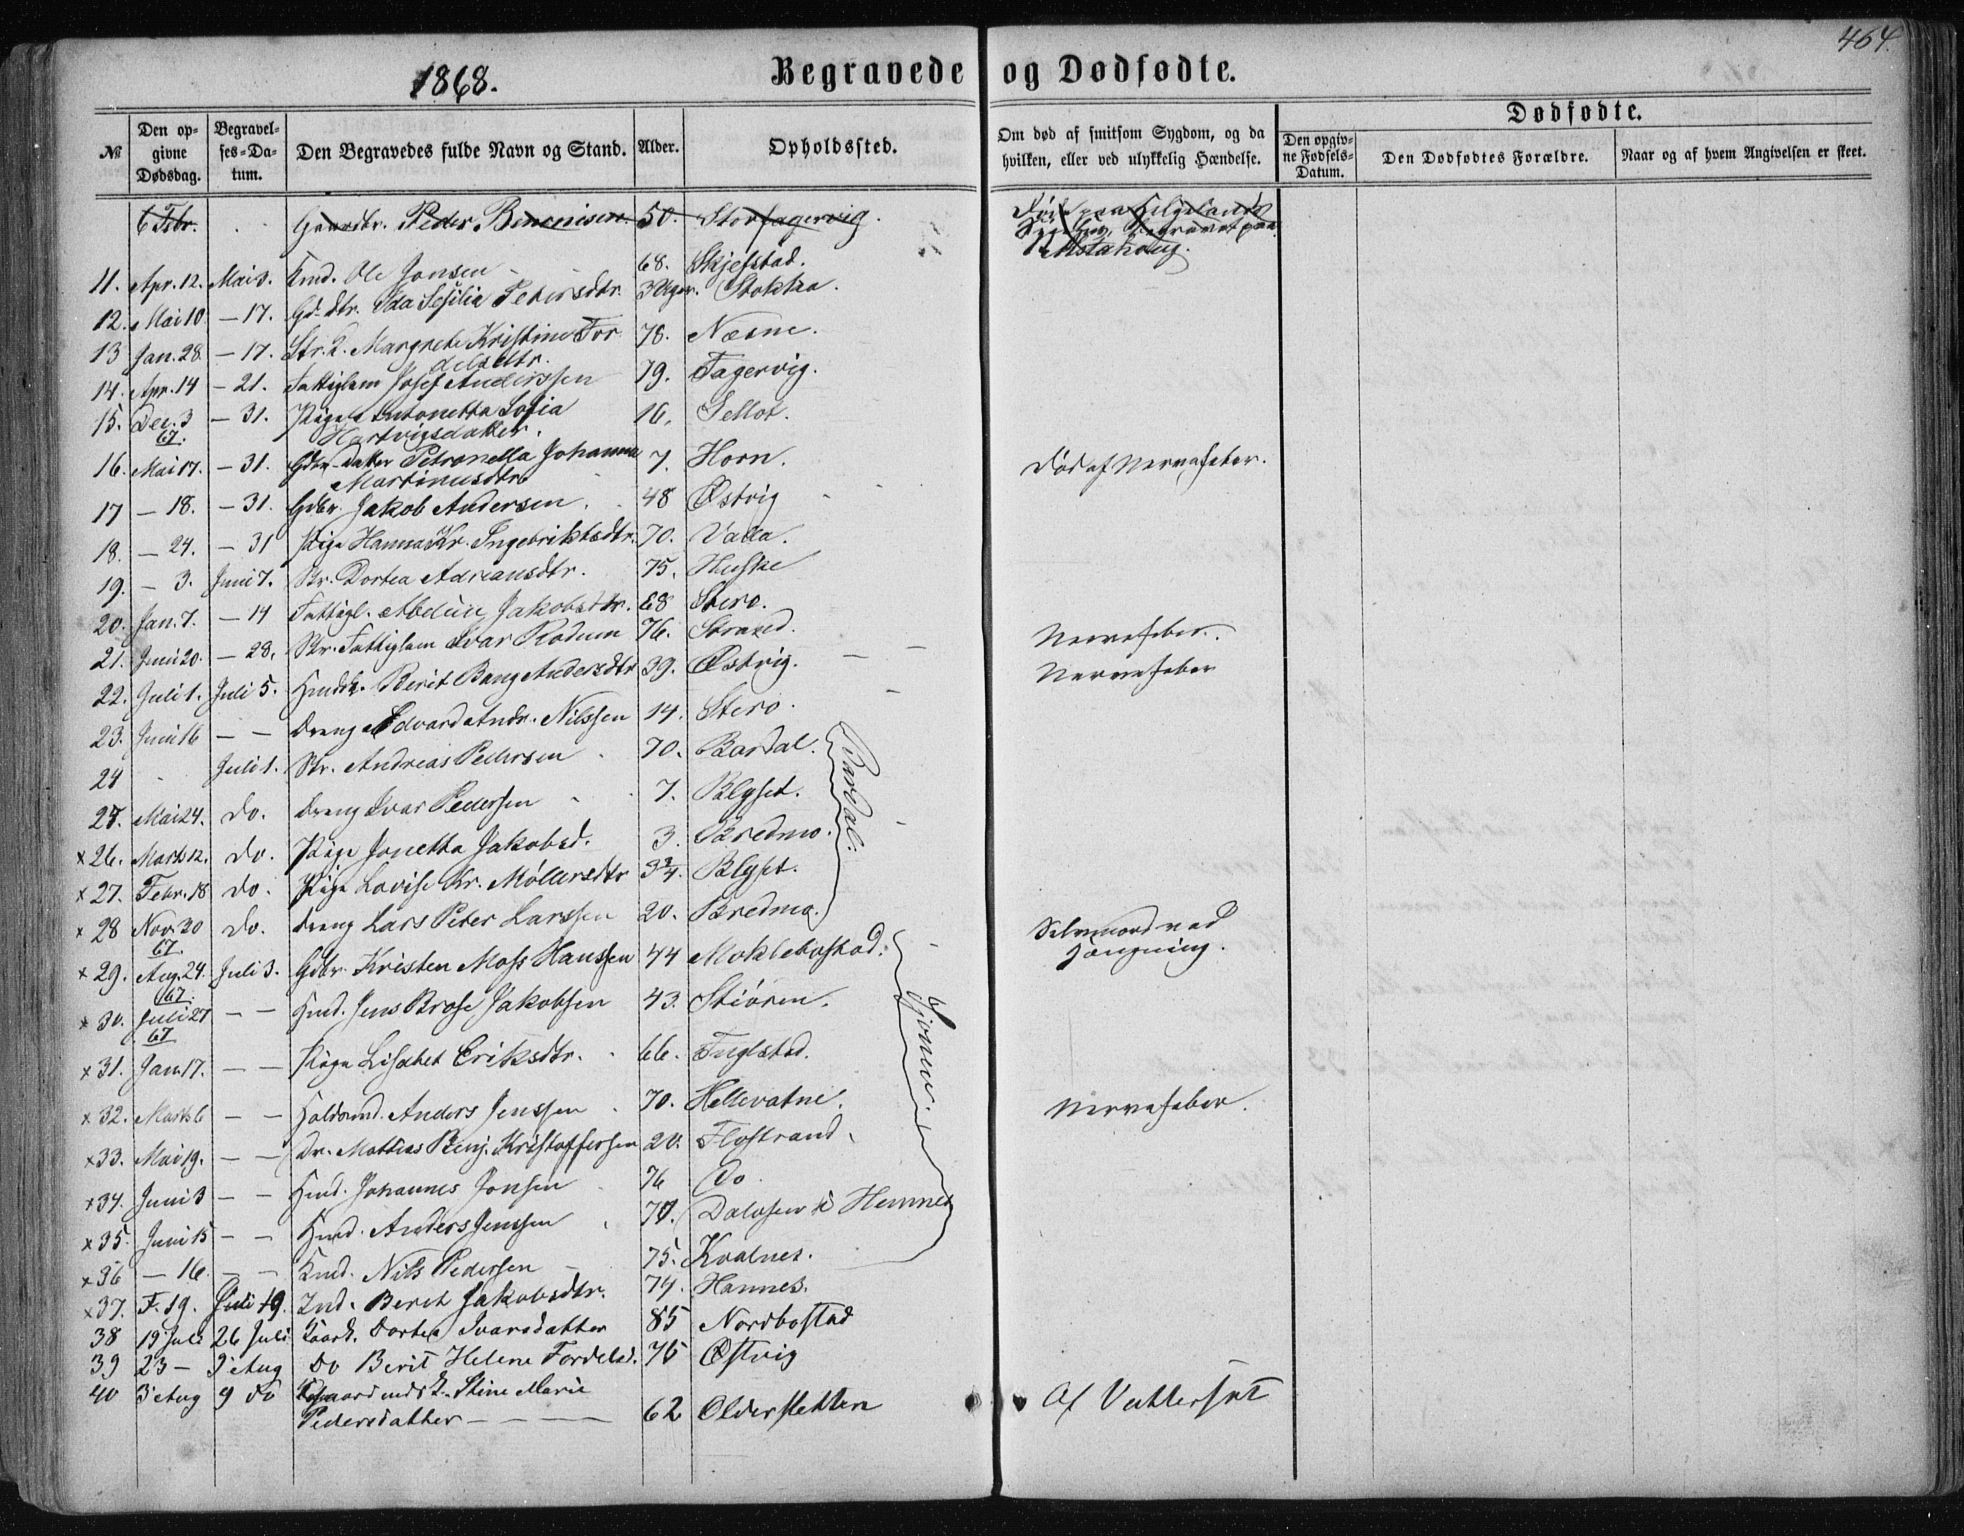 464.
1868.
Begravede og Dødfødte.
Dødfødte.
№
Den opgivne Dødsdag.
Begravelses-Datum.
Den Begravedes fulde Navn og Stand.
Alder.
Opholdssted.
Om død af smitsom Sygdom, og da hvilken, eller ved ulykkelig Hændelse.
Den opgivne Fødsels-Datum.
Den Dødfødtes Forældre.
Naar og af hvem Angivelsen er skeet.
6 Febr. Gaardbr. Peder Benonisen 50. Storfagervig.
Død paa Helgelands
Begravet paa
Alstahoug.
11. Apr. 12. Mai 3. Kmd. Ole Jonsen 68. Skjefstad.
12. Mai 10 — 17. Gd. dtr. Ida Sesilia Petersdtr. 3 Uger. Stokka.
13 Jan. 28 — 17. Str. K. Margrete Kristine Tor 78. Næsne.
delsdtr.
14. Apr. 14 — 21. Fattiglem Josef Anderssen 79. Fagervig.
15. Dec. 3 — 31. Pige Antonetta Sofia 16. Sellot.
67. Hartvigsdatter.
16. Mai 17. — 31. Gdbr. datter Petronella Johanna 7. Horn. Død af Nervefeber.
Martinusdtr.
17 — 18. — 31. Gdbr. Jakob Andersen. 48 Østvig
18. — 24. — 31 Pige Hanna Kr. Ingebriktsdtr. 70. Valla.
19. — 3. Juni 7. Str. Dortea Adriansdtr. 75. Huske
20. Jan. 7. — 14 Fattigl. Abelüne Jakobsdtr. 68 Stero.
21. Juni 20. — 28. Str. Fattiglem Ivar Rodum 76. Strand. Nervefeber.
22. Juli 1. Juli 5. Hmdsk. Berit Bang Andersdtr 39. Østvig. Nervefeber
23. Juni 16 — — Dreng Edvard Andr. Nilssen 14. Stero.
24 Juli 1. Str. Andreas Pedersen 70. Bardal.
Bardal.
25. Mai 24. do. Dreng Ivar Pedersen 7. Blyset.
× 26. Marts 12. do. Pige Jonetta Jakobsd. 3. Bredmo.
× 27. Febr. 18 do. Pige Lovise Kr. Møllersdtr 3 3/4. Blyset.
× 28 Nov. 30 do. Dreng Lars Peter Larssen 20. Bredmo. Selvmord ved
67. Hængning.
× 29. Aug. 24. Juli 3. Gdbr. Kristen Moss Hanssen 44 Moklebostad.
67.
× 30. Juli 27 — — Hmd. Jens Brose Jakobsen 43. Stiøren.
67
Sjonen.
× 31. Jan. 17. — — Pige Lisabet Eriksdtr. 66. Fuglstad.
× 32. Marts 6 — — Holdsmd. Anders Jenssen 70. Hellevatne. Nervefeber.
× 33. Mai 19. — — Dr. Mattias Benj. Kristoffersen 20. Flostrand.
× 34. Juni 3 — — Hmd. Johannes Jonsen 76 Do.
× 35. Juni 15 — — Hmd. Anders Jenssen 70. Dalosen i Hemnes
× 36 — 16. — — Kmd. Nils Pedersen 75. Kvalnes.
× 37. F. 19. Juli 19. Ind. Berit Jakobsdtr. 74. Hannes.
38 19 Juli 26 Juli Kaark. Dortea Ivarsdatter 85 Nordbostad
39 23 — 9 Aug Do Berit Helene Tordelsd. 75 Østvig
40 3 Aug 9 do Gaardmdsk. Stine Marie
Pedersdatter — — — — 62 Oldersletten Af Vattersot